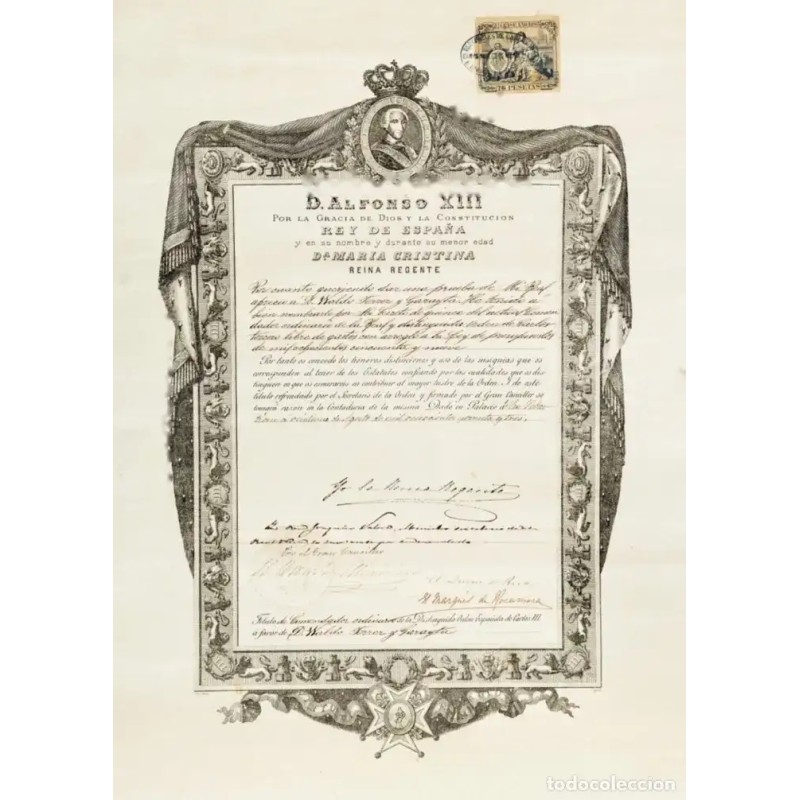 75 PESETAS
D. ALFONSO XIII
POR LA GRACIA DE DIOS Y LA CONSTITUCION
REY DE ESPAÑA
y en su nombre y durante su menor edad
Dª MARIA CRISTINA
REINA REGENTE
Por cuanto queriendo dar una prueba de Mi Real
aprecio a D. Waldo Ferrer y He tenido a
bien nombrarle por Mi Decreto de quince del actual Comen
dador ordinario de la Real y distinguida orden de Carlos
tercero libre de gastos con arreglo a la Ley de presupuestos
de mil ochocientos cincuenta y nueve.
Por tanto os concedo los honores distinciones y uso de las insignias que os
corresponden al tenor de los Estatutos confiando por las cualidades que os dis
tinguen en que os esmerareis en contribuir al mayor lustre de la Orden. Y de este
título refrendado por el Secretario de la Orden y firmado por el Gran Canciller se
tomará razon en la Contaduria de la misma. Dado en Palacio de San Sebas
tian a de Agosto de mil ochocientos noventa y tres.
Yo la Reina Regente
Yo Don Joaquin Valera, Ministro secretario de la
Por el Gran Canciller
El Marqués de
Título de Comendador ordinario de la Distinguida Orden Española de Carlos III
a favor de D. Waldo Ferrer y
todocoleccion